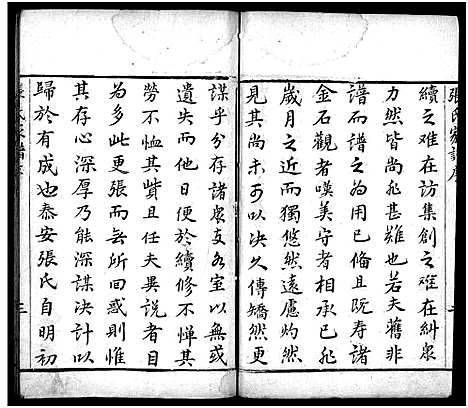 張氏家譜序
續之難在訪集創之難在糾衆
力然皆尚非甚難也若夫舊非
譜而譜之為用已備且既壽諸
金石觀者嘆美守者相承已非
歲月之近而獨悠然遠慮灼然
見其尚未可以決久傳矯然更
謀乎分存諸衆支各室以無或
遺失而他日便於續修不憚其
勞不惜其貲且任夫異說者目
為多此更張而無所回惑則惟
其存心深厚乃能深謀決計以
歸於有成也泰安張氏自明初
張氏家譜序
三